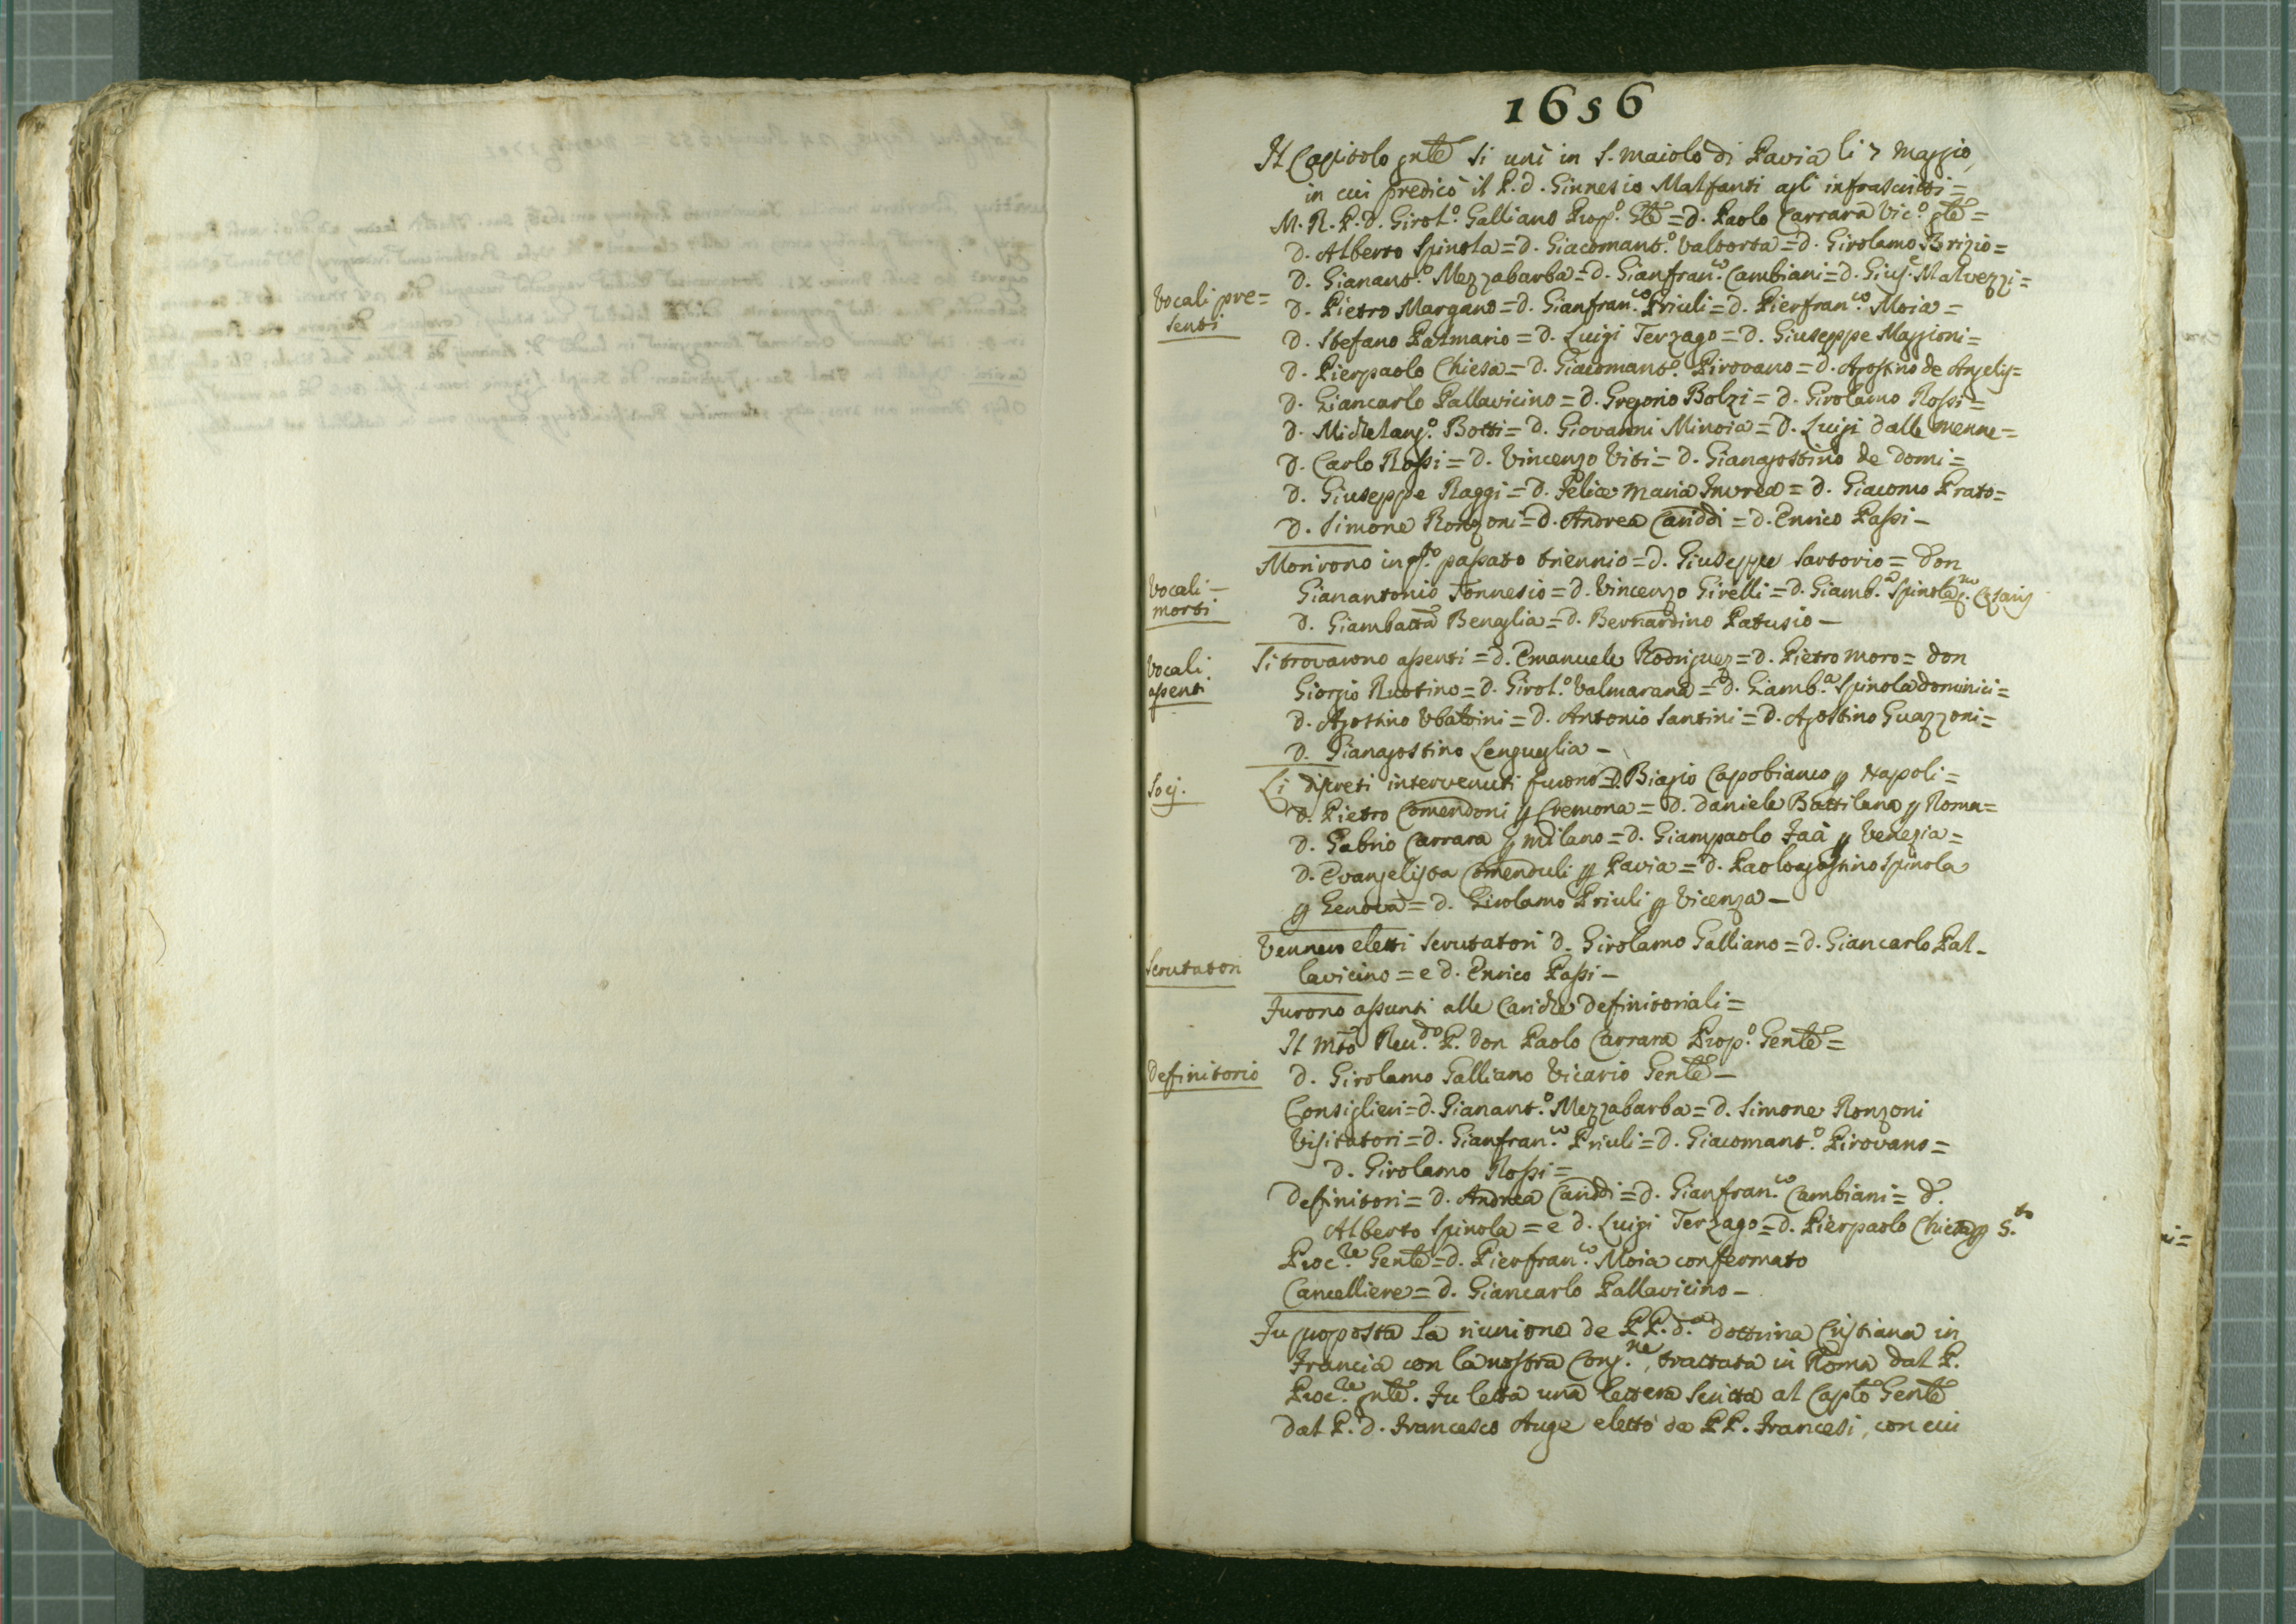 1656
Il Capitolo gnle si unì in S. Maiolo di Pavia li 7 Maggio,
in cui predicò il P. d. Ginnesio Malfanti agl' infrascritti =
M. R. P. d. Girol.o Galliano Prop.o Gle = d. Paolo Carrara Vic.o gle =
d. Alberto Spinola = d. Giacomant.o Valtorta = d. Girolamo Brizio =
d. Gianant.o Mezzabarba = d. Gianfran.co Cambiani = d. Gius.e Malvezzi =
Vocali pre=
senti
d. Pietro Margano = d. Gianfran.co Priuli = d. Pierfran.co Moia =
d. Stefano Palmario = d. Luigi Terzago = d. Giuseppe Maggioni =
d. Pierpaolo Chiesa = d. Giacomant.o Pirovano = d. Agostino de Angelis =
d. Giancarlo Pallavicino = d. Gregorio Bolzi = d. Girolamo Rossi =
d. Michelang.o Botti = d. Giovanni Minoia = d. Luigi dalle menne =
d. Carlo Rossi = d. Vincenzo Viti = d. Gianagostino de Domi =
d. Giuseppe Raggi = d. Felice Maria Invrea = d. Giacomo Prato =
d. Simone Ronzoni = d. Andrea Cariddi = d. Enrico Passi -
Vocali -
morti
Morirono in q.to passato triennio = d. Giuseppe Sartorio = don
Gianantonio Tonnesio = d. Vincenzo Girelli = d. Giamb.a Spinola q.m Cesaris
d. Giambatta Benaglia = d. Bernardino Patusio -
Vocali
assenti
Si trovarono assenti = d. Emanuele Rodriguez = d. Pietro Moro = don
Giorgio Ruotino = d. Girol.o Valmarana = d. Giamb.a Spinola Dominici =
d. Agostino Ubaldini = d. Antonio Santini = d. Agostino Guazzoni =
d. Gianagostino Lenguglia -
Socj.
Li discreti intervenuti furono = D. Biagio Capobianco p Napoli =
d. Pietro Comendoni p Cremona = d. Daniele Battilana p Roma =
d. Gabrio Carrara p Milano = d. Giampaolo Faà p Venezia =
d. Evangelista Comenduli p Pavia = d. Paoloagostino Spinola
p Genova = d. Girolamo Priuli p Vicenza -
Scrutatori
Vennero eletti Scrutatori d. Girolamo Galliano = d. Giancarlo Pal-
lavicino = e d. Enrico Passi -
Furono assunti alle Cariche definitoriali =
Il Mto Reu.do P. don Paolo Carrara Prop.o Genle =
Definitorio
d. Girolamo Galliano Vicario Genle -
Consiglieri = d. Gianant.o Mezzabarba = d. Simone Ronzoni
Visitatori = d. Gianfran.co Priuli = d. Giacomant.o Pirovano =
d. Girolamo Rossi =
Definitori = d. Andrea Cariddi = d. Gianfran.co Cambiani = d.
Alberto Spinola = e d. Luigi Terzago = d. Pierpaolo Chiesa p 5.to
Proc.re Genle = d. Pierfran.co Moia confermato
Cancelliere = d. Giancarlo Pallavicino -
Fu proposta la riunione de PP. d.a dottrina Cristiana in
Francia con la nostra Cong.ne, trattata in Roma dal P.
Proc.re gnle. Fu letta una lettera scritta al Caplo Genle
dal P. d. Francesco Auge eletto da PP. Francesi, con cui